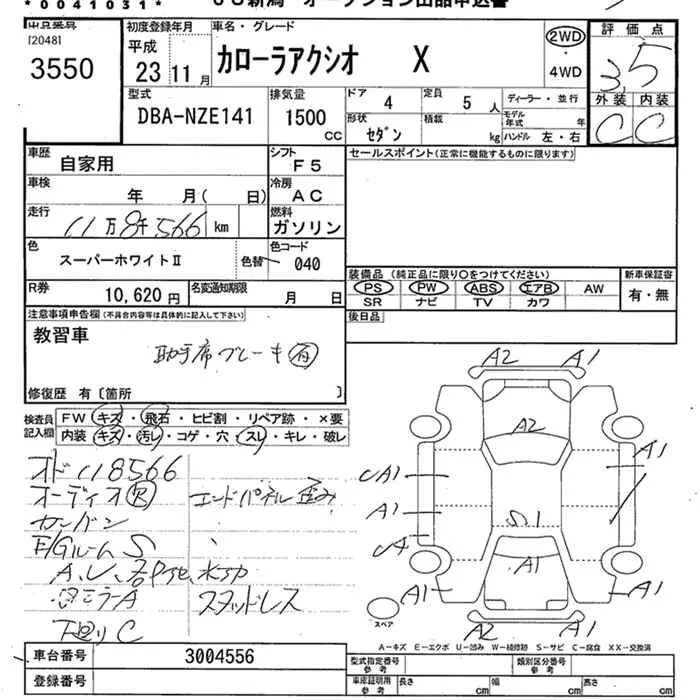 *0041031*
新潟 オークション出品申込書
I20481
3550
初度登録年月
平成
23 11 月
車名・グレード
カローラアクシオ X
2WD
・
4WD
評価点
3.5
外装 内装
C C
型式
DBA-NZE141
排気量
1500
CC
ドア
4
定員
5 人
ディーラー・並行
形状
セダン
積載
kg
モデル年式 年
ハンドル 左・右
車歴
自家用
シフト
F5
セールスポイント(正常に機能するものに限ります)
車検
年 月( 日)
冷房
AC
走行
11万8千566 km
燃料
ガソリン
色
スーパーホワイトⅡ
色替
色コード
040
装備品 (純正品に限り○をつけてください)
PS PW ABS エアB AW
SR ナビ TV カワ
新車保証書
有・無
R券
10,620 円
名変通知期限
月 日
後日品
注意事項申告欄 (不具合内容等は具体的に記入して下さい)
教習車
助手席ブレーキ有
修復歴 有〔箇所 〕
検査員
記入欄
FW キズ・飛石・ヒビ割・リペア跡・×要
内装 キズ・汚レ・コゲ・穴・スレ・キレ・破レ
オド118566
オーディオR エンドパネル歪み
カンバン
E/Gルーム S
A、U、
ミラーA スタッドレス
下回りC
A2 A1
A2
A1
A1
A1
S1
A1
A1
A1
A2 A1
スペア
A-キズ E-エクボ U-凹み W-補修跡 S-サビ C-腐食 XX-交換済
車台番号
3004556
登録番号
型式指定番号
参考
類別区分番号
参考
車庫証明用
参考
長さ cm
幅 cm
高さ cm